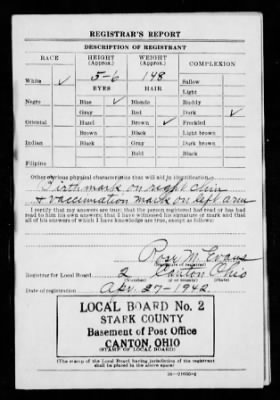 REGISTRAR'S REPORT
DESCRIPTION OF REGISTRANT
RACE HEIGHT (Approx.) WEIGHT (Approx.) COMPLEXION
White ✓ 5-6 148 Sallow
EYES HAIR Light
Negro Blue ✓ Blonde Ruddy
Gray Red Dark ✓
Oriental Hazel Brown ✓ Freckled
Brown Black Light brown
Indian Black Gray Dark brown
Bald Black
Filipino
Other obvious physical characteristics that will aid in identification
Birthmark on right shin
& vaccination mark on left arm
I certify that my answers are true; that the person registered has read or has had
read to him his own answers; that I have witnessed his signature or mark and that
all of his answers of which I have knowledge are true, except as follows:
Rose M. Evans
(Signature of registrar)
Registrar for Local Board 2 Canton Ohio
(Number) (City or county) (State)
Date of registration Apr. 27-1942
LOCAL BOARD No. 2
STARK COUNTY
Basement of Post Office
CANTON, OHIO
(STAMP OF LOCAL BOARD)
(The stamp of the Local Board having jurisdiction of the registrant
shall be placed in the above space.)